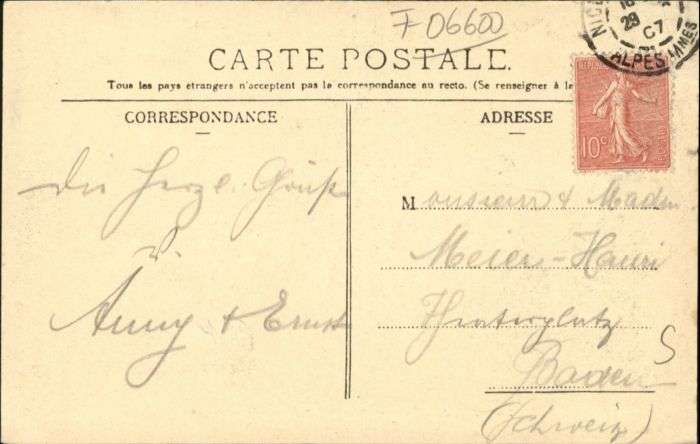 F 06600
CARTE POSTALE.
Tous les pays étrangers n'acceptent pas la correspondance au recto. (Se renseigner à le
CORRESPONDANCE
ADRESSE
ALPES
10c
Die Herzl. Grüße
v.
Anny & Ernst
Monsieur & Madm
Meier-Hauri
Hinterplatz
Baden
(Schweiz)